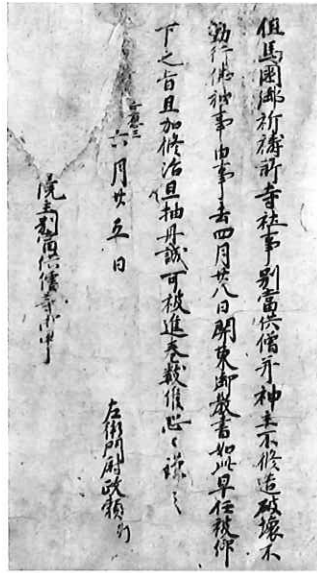 但馬國御祈禱所寺社事別當供僧并神主不修造破壊不
勤行佛神事由事去四月廿八日関東御教書如此早任被仰
下之旨且加修治且抽丹誠可被進巻数候恐々謹言
正應三
六月廿五日
左衛門尉政頼
院主別當供僧等御中